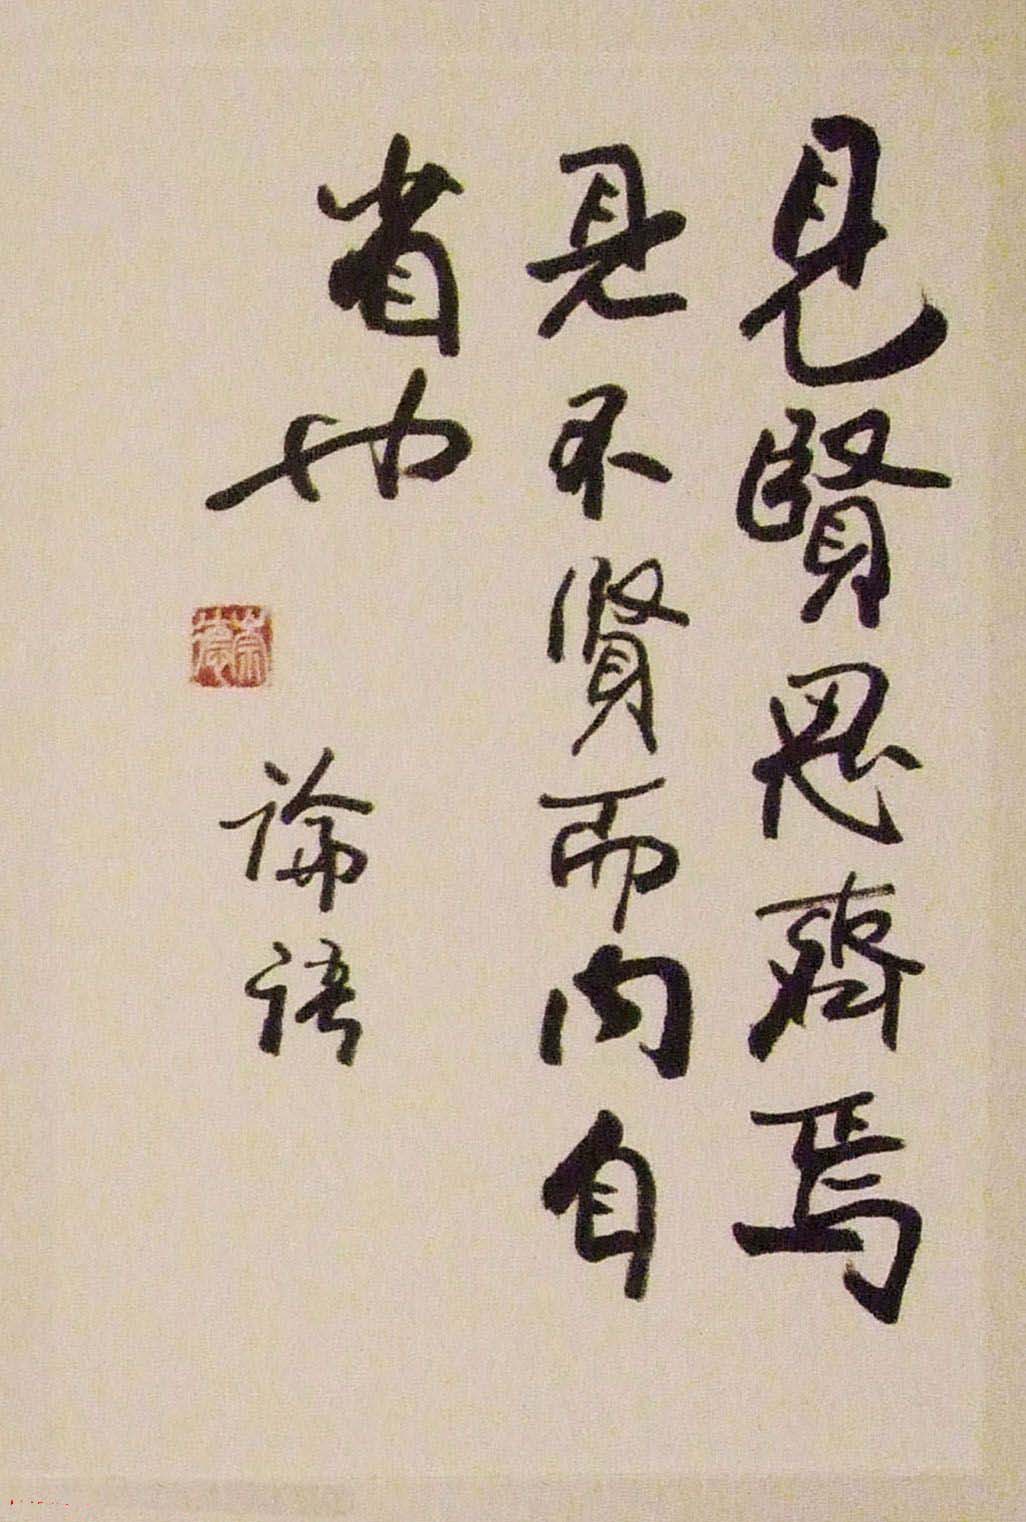 見賢思齊焉
見不賢而内自
省也
論語